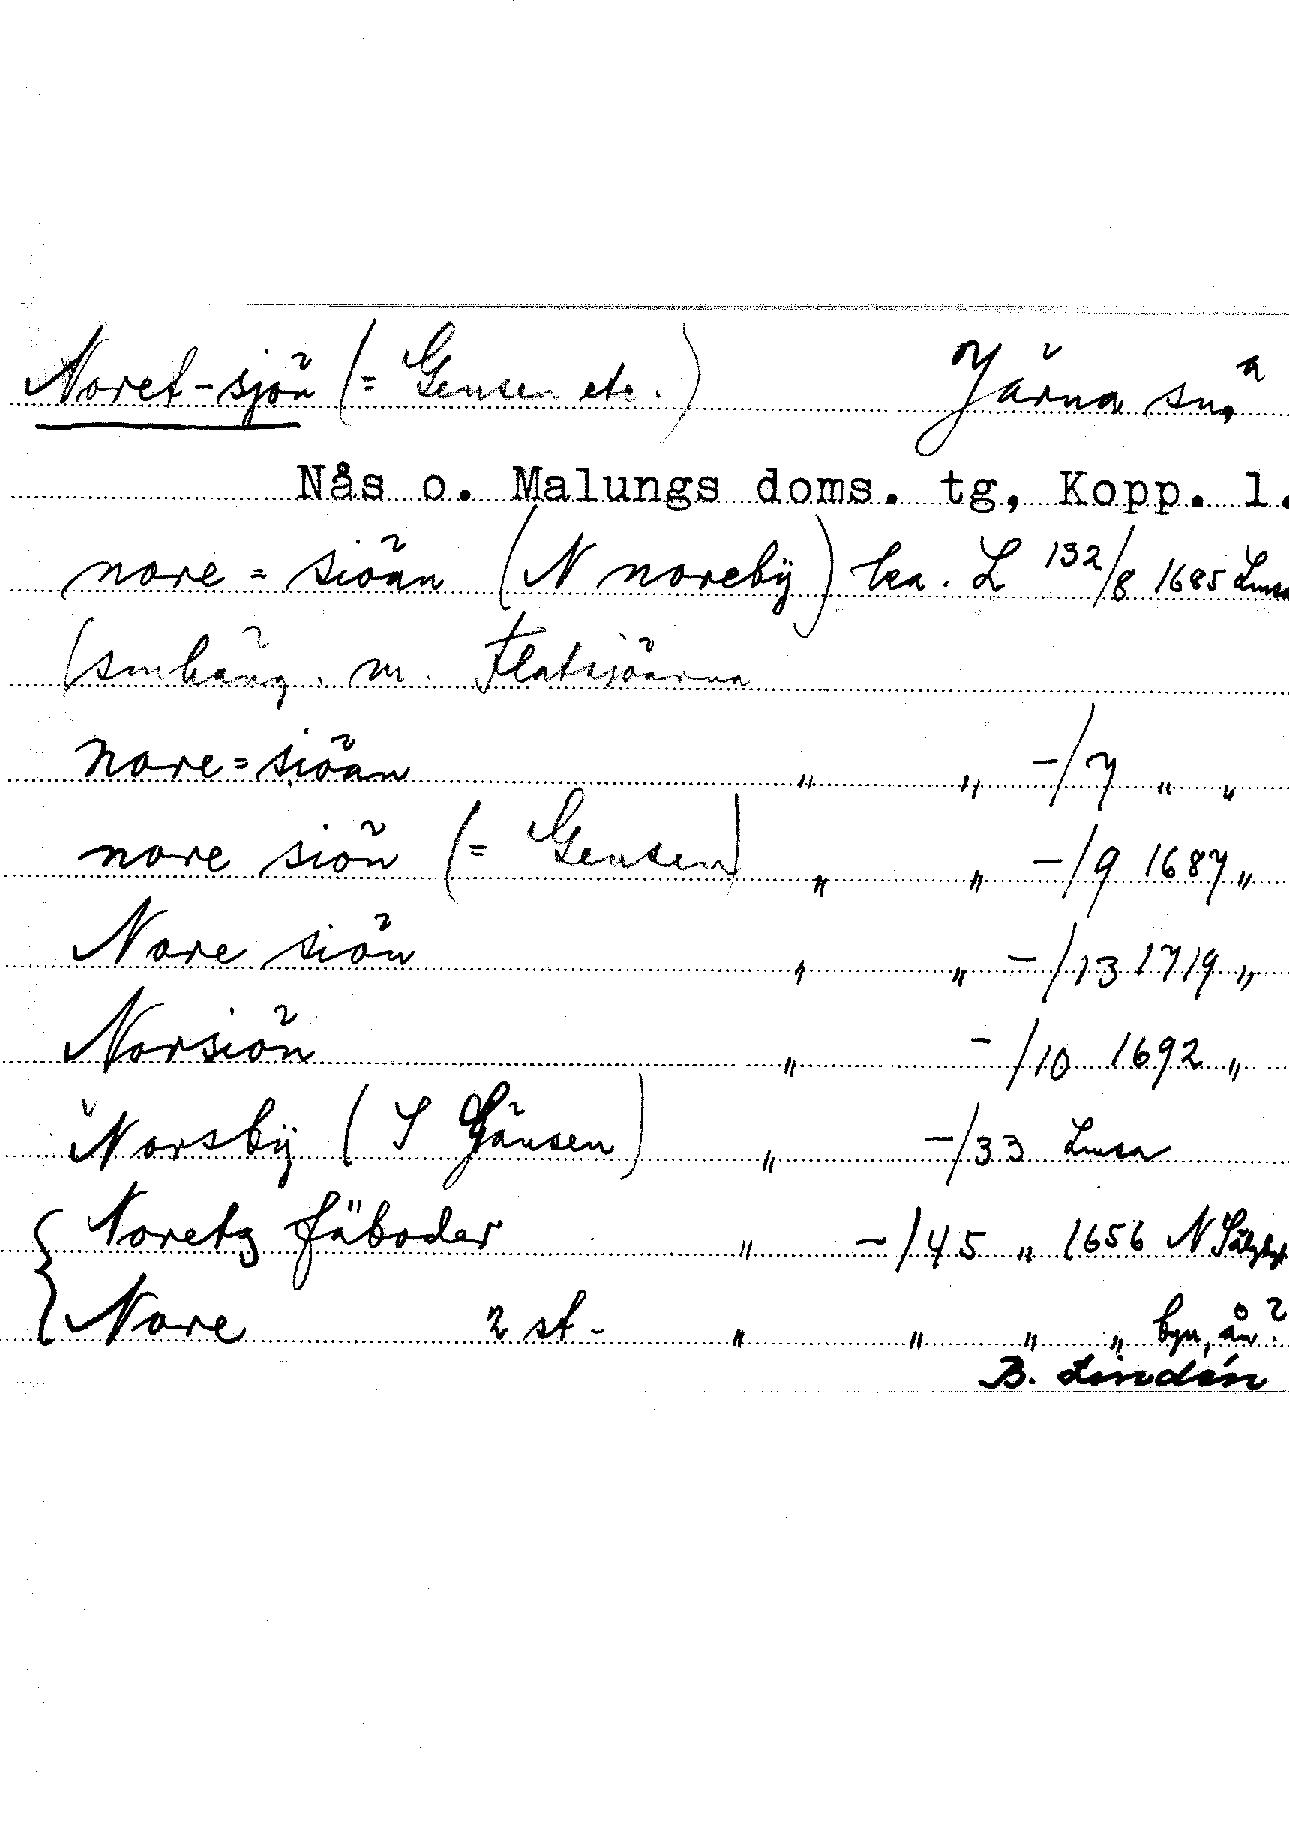 Noret-sjön (= Gensen etc.) Järna sn, a
Nås o. Malungs doms. tg, Kopp. l.
nore = siöan (N norebÿ) ka. L 132/8 1685 Lmsa
(smhäng. m. Flatsjöarna
nore=siöan " " -/7 " "
nore siön (= Gensen) " " -/9 1687 "
Nore siön " " -/13 1719 "
Norsiön " -/10 1692 "
Norsbÿ (S Gänsen) " -/33 Lmsa
Noretz fäboder " -/45 " 1656 N
Nore 2 st. " " " " byn, ån?
B. Lindén